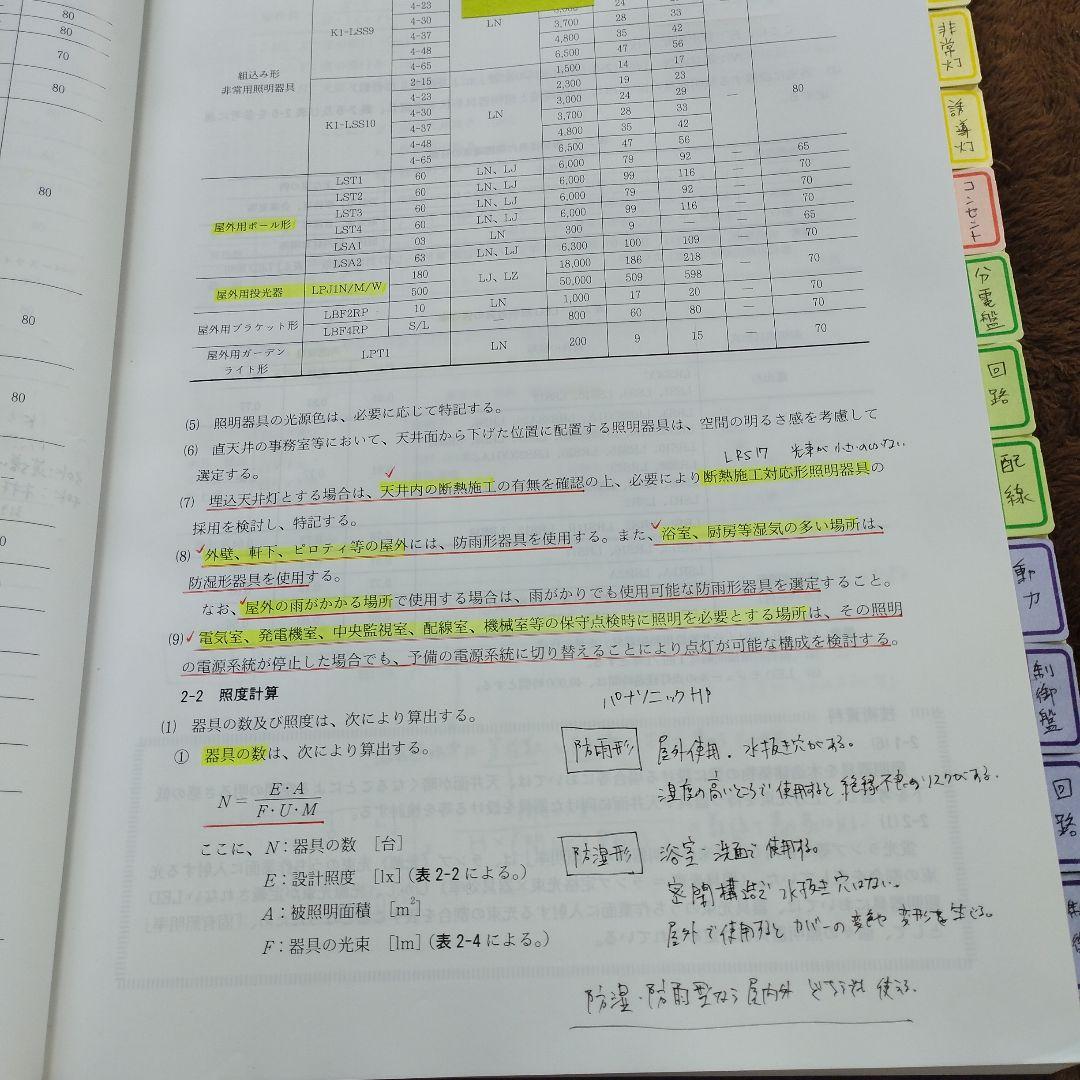 80
80
70
80
80
80
80
4-23
24
K1-LSS9 4-30 LN 3,700 28 33
4-37 4,800 35 42
4-48 6,500 47 56
4-65 1,500 14 17
組込み形
非常用照明器具
2-15 2,300 19 23
4-23 3,000 24 29
K1-LSS10 4-30 LN 3,700 28 33 — 80
4-37 4,800 35 42
4-48 6,500 47 56
4-65
屋外用ポール形
LST1 60 LN、LJ 6,000 79 92 — 65
LST2 60 LN、LJ 6,000 99 116 — 70
LST3 60 LN、LJ 6,000 79 92 — 70
LST4 60 LN、LJ 6,000 99 116 — 70
LSA1 03 LN 300 9 — 65
LSA2 63 LN、LJ 6,300 100 109 — 70
屋外用投光器 LPJ1N/M/W 180 LJ、LZ 18,000 186 218 — 70
500 50,000 509 598
屋外用ブラケット形 LBF2RP 10 LN 1,000 17 20 — 70
LBF4RP S/L 800 60 80 — 70
屋外用ガーデン
ライト形 LPT1 LN 200 9 15 — 70
(5) 照明器具の光源色は、必要に応じて特記する。
(6) 直天井の事務室等において、天井面から下げた位置に配置する照明器具は、空間の明るさ感を考慮して
選定する。
LRS17 光束が小さいのしかない
(7) 埋込天井灯とする場合は、天井内の断熱施工の有無を確認の上、必要により断熱施工対応形照明器具の
採用を検討し、特記する。
(8) 外壁、軒下、ピロティ等の屋外には、防雨形器具を使用する。また、浴室、厨房等湿気の多い場所は、
防湿形器具を使用する。
なお、屋外の雨がかかる場所で使用する場合は、雨がかりでも使用可能な防雨形器具を選定すること。
(9) 電気室、発電機室、中央監視室、配線室、機械室等の保守点検時に照明を必要とする場所は、その照明
の電源系統が停止した場合でも、予備の電源系統に切り替えることにより点灯が可能な構成を検討する。
2-2 照度計算
パナソニックHP
(1) 器具の数及び照度は、次により算出する。
① 器具の数は、次により算出する。
N = E・A / F・U・M
ここに、N：器具の数 [台]
E：設計照度 [lx]（表2-2による。）
A：被照明面積 [m²]
F：器具の光束 [lm]（表2-4による。）
防雨形 屋外使用．水抜き穴がある。
湿度の高いところで使用すると絶縁不良のリスクがある．
防湿形 浴室・洗面で使用する。
密閉構造で水抜き穴はない。
屋外で使用するとカバーの変色や変形を生じる。
防湿・防雨型なら屋内外どちらも使える．
非常灯
誘導灯
コンセント
分電盤
回路
配線
動力
制御盤
回路